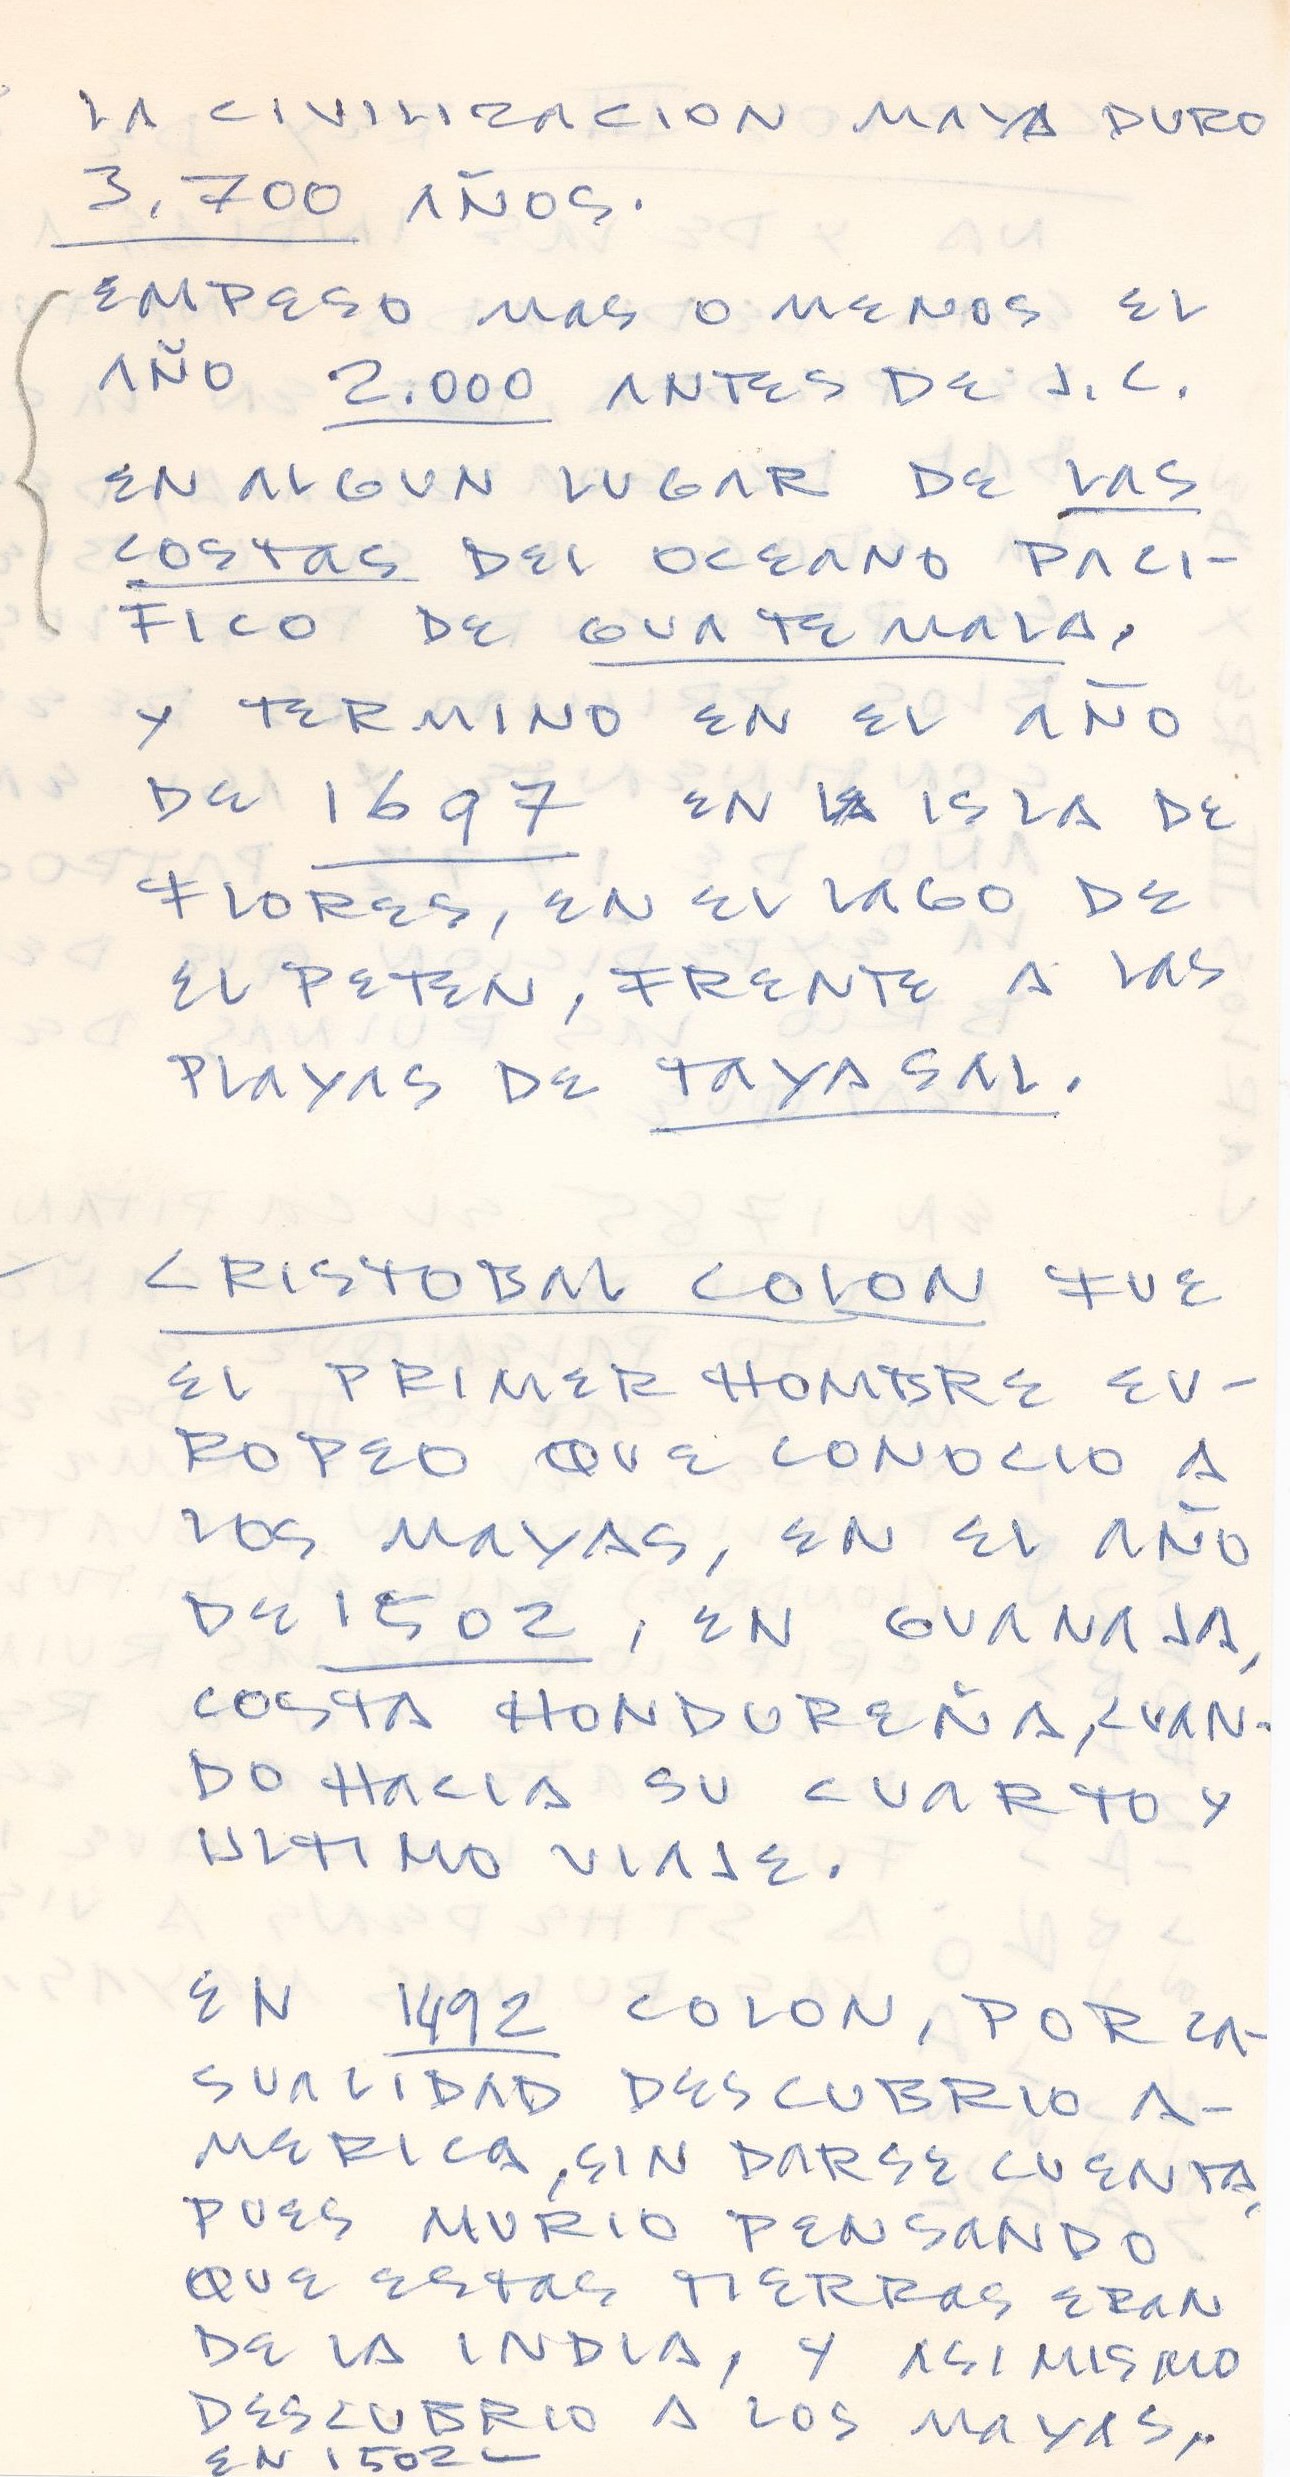 LA CIVILIZACION MAYA DURO
3.700 AÑOS.
EMPESO MAS O MENOS EL
AÑO 2.000 ANTES DE J.C.
EN ALGUN LUGAR DE LAS
COSTAS DEL OCEANO PACI-
FICO DE GUATEMALA,
Y TERMINO EN EL AÑO
DE 1697 EN LA ISLA DE
FLORES, EN EL LAGO DE
EL PETEN, FRENTE A LAS
PLAYAS DE TAYASAL.
CRISTOBAL COLON FUE
EL PRIMER HOMBRE EU-
ROPEO QUE CONOCIO A
LOS MAYAS, EN EL AÑO
DE 1502, EN GUANAJA,
COSTA HONDUREÑA, CUAN-
DO HACIA SU CUARTO Y
ULTIMO VIAJE.
EN 1492 COLON, POR CA-
SUALIDAD DESCUBRIO A-
MERICA, SIN DARSE CUENTA,
PUES MURIO PENSANDO
QUE ESTAS TIERRAS ERAN
DE LA INDIA, Y ASIMISMO
DESCUBRIO A LOS MAYAS,
EN 1502